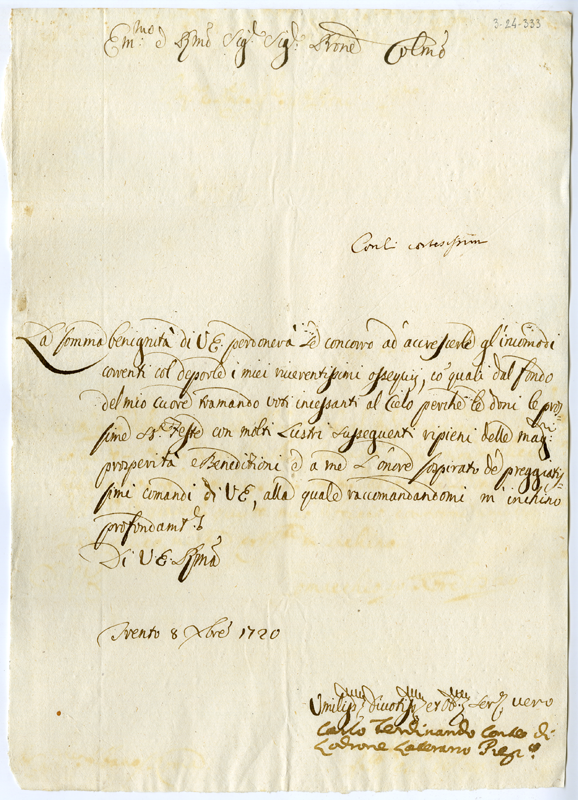 3-24-333
Em.mo e Rmo Sig.r Sig.r Prone Colmo
Con li cortesissimi
La somma benignità di V.E. perdonerà se concorro ad accrescerle gl'incomodi
correnti col deporle i miei riverentissimi ossequij, co' quali dal fondo
del mio cuore tramando voti incessanti al Cielo perche le doni le pros-
sime S.te Feste con molti Lustri susseguenti ripieni delle mag.ri
prosperità e Benedizioni e a me l'onore sospirato de' preggiatis-
simi comandi di V.E., alla quale raccomandandomi m'inchino
profondam.te
Di V.E. Rma
Trento 8 Xbre 1720
Umiliss.mo Divotiss.mo ed Obb.mo Ser.re vero
Carlo Ferdinando Conte di
Lodrone Laterano